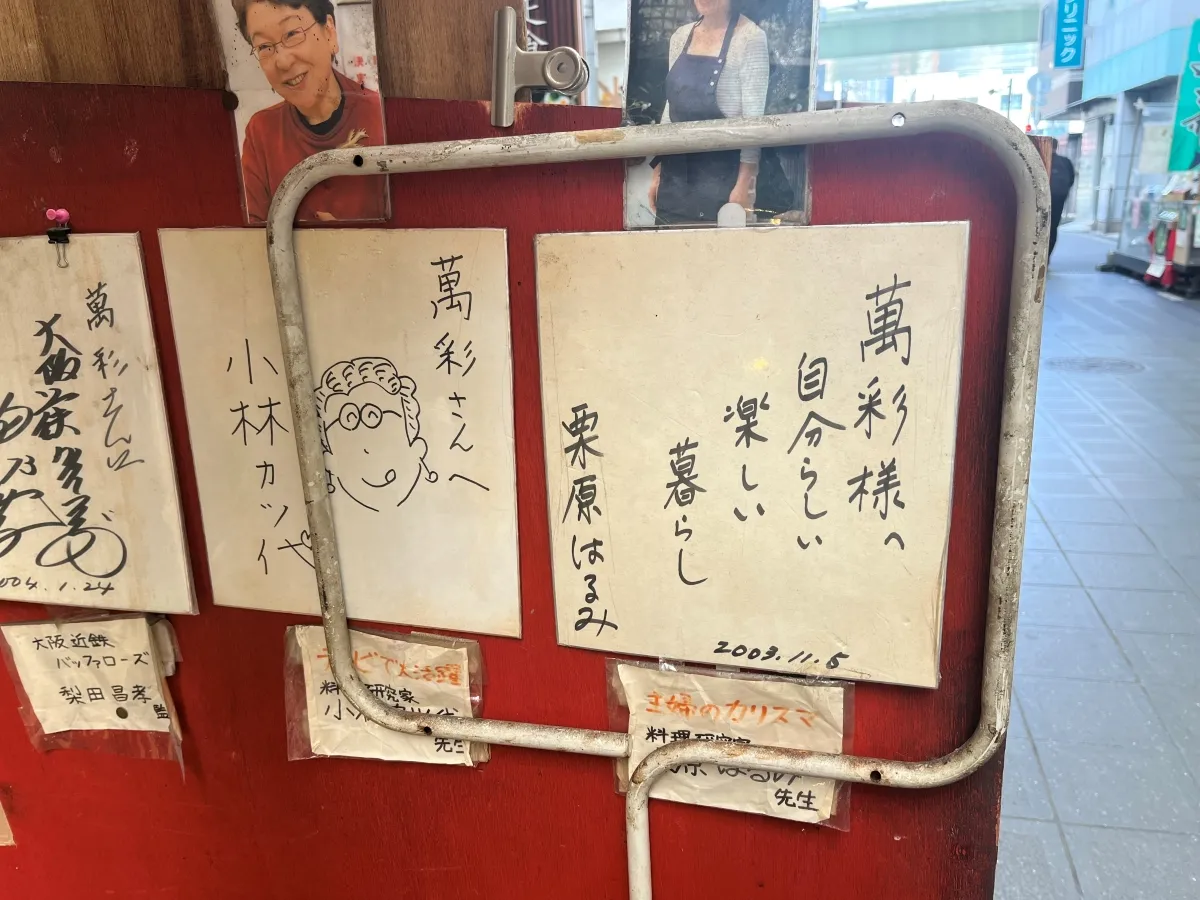 萬彩様へ
自分らしい
楽しい
暮らし
栗原はるみ
2003.11.5
主婦のカリスマ
料理研究家
原はるみ
先生
萬彩さんへ
小林カツ代
テレビで大活躍
料理研究家
小林カツ代
先生
萬彩さんへ
大阪
004.1.24
大阪近鉄
バッファローズ
梨田昌孝
監
クリニック